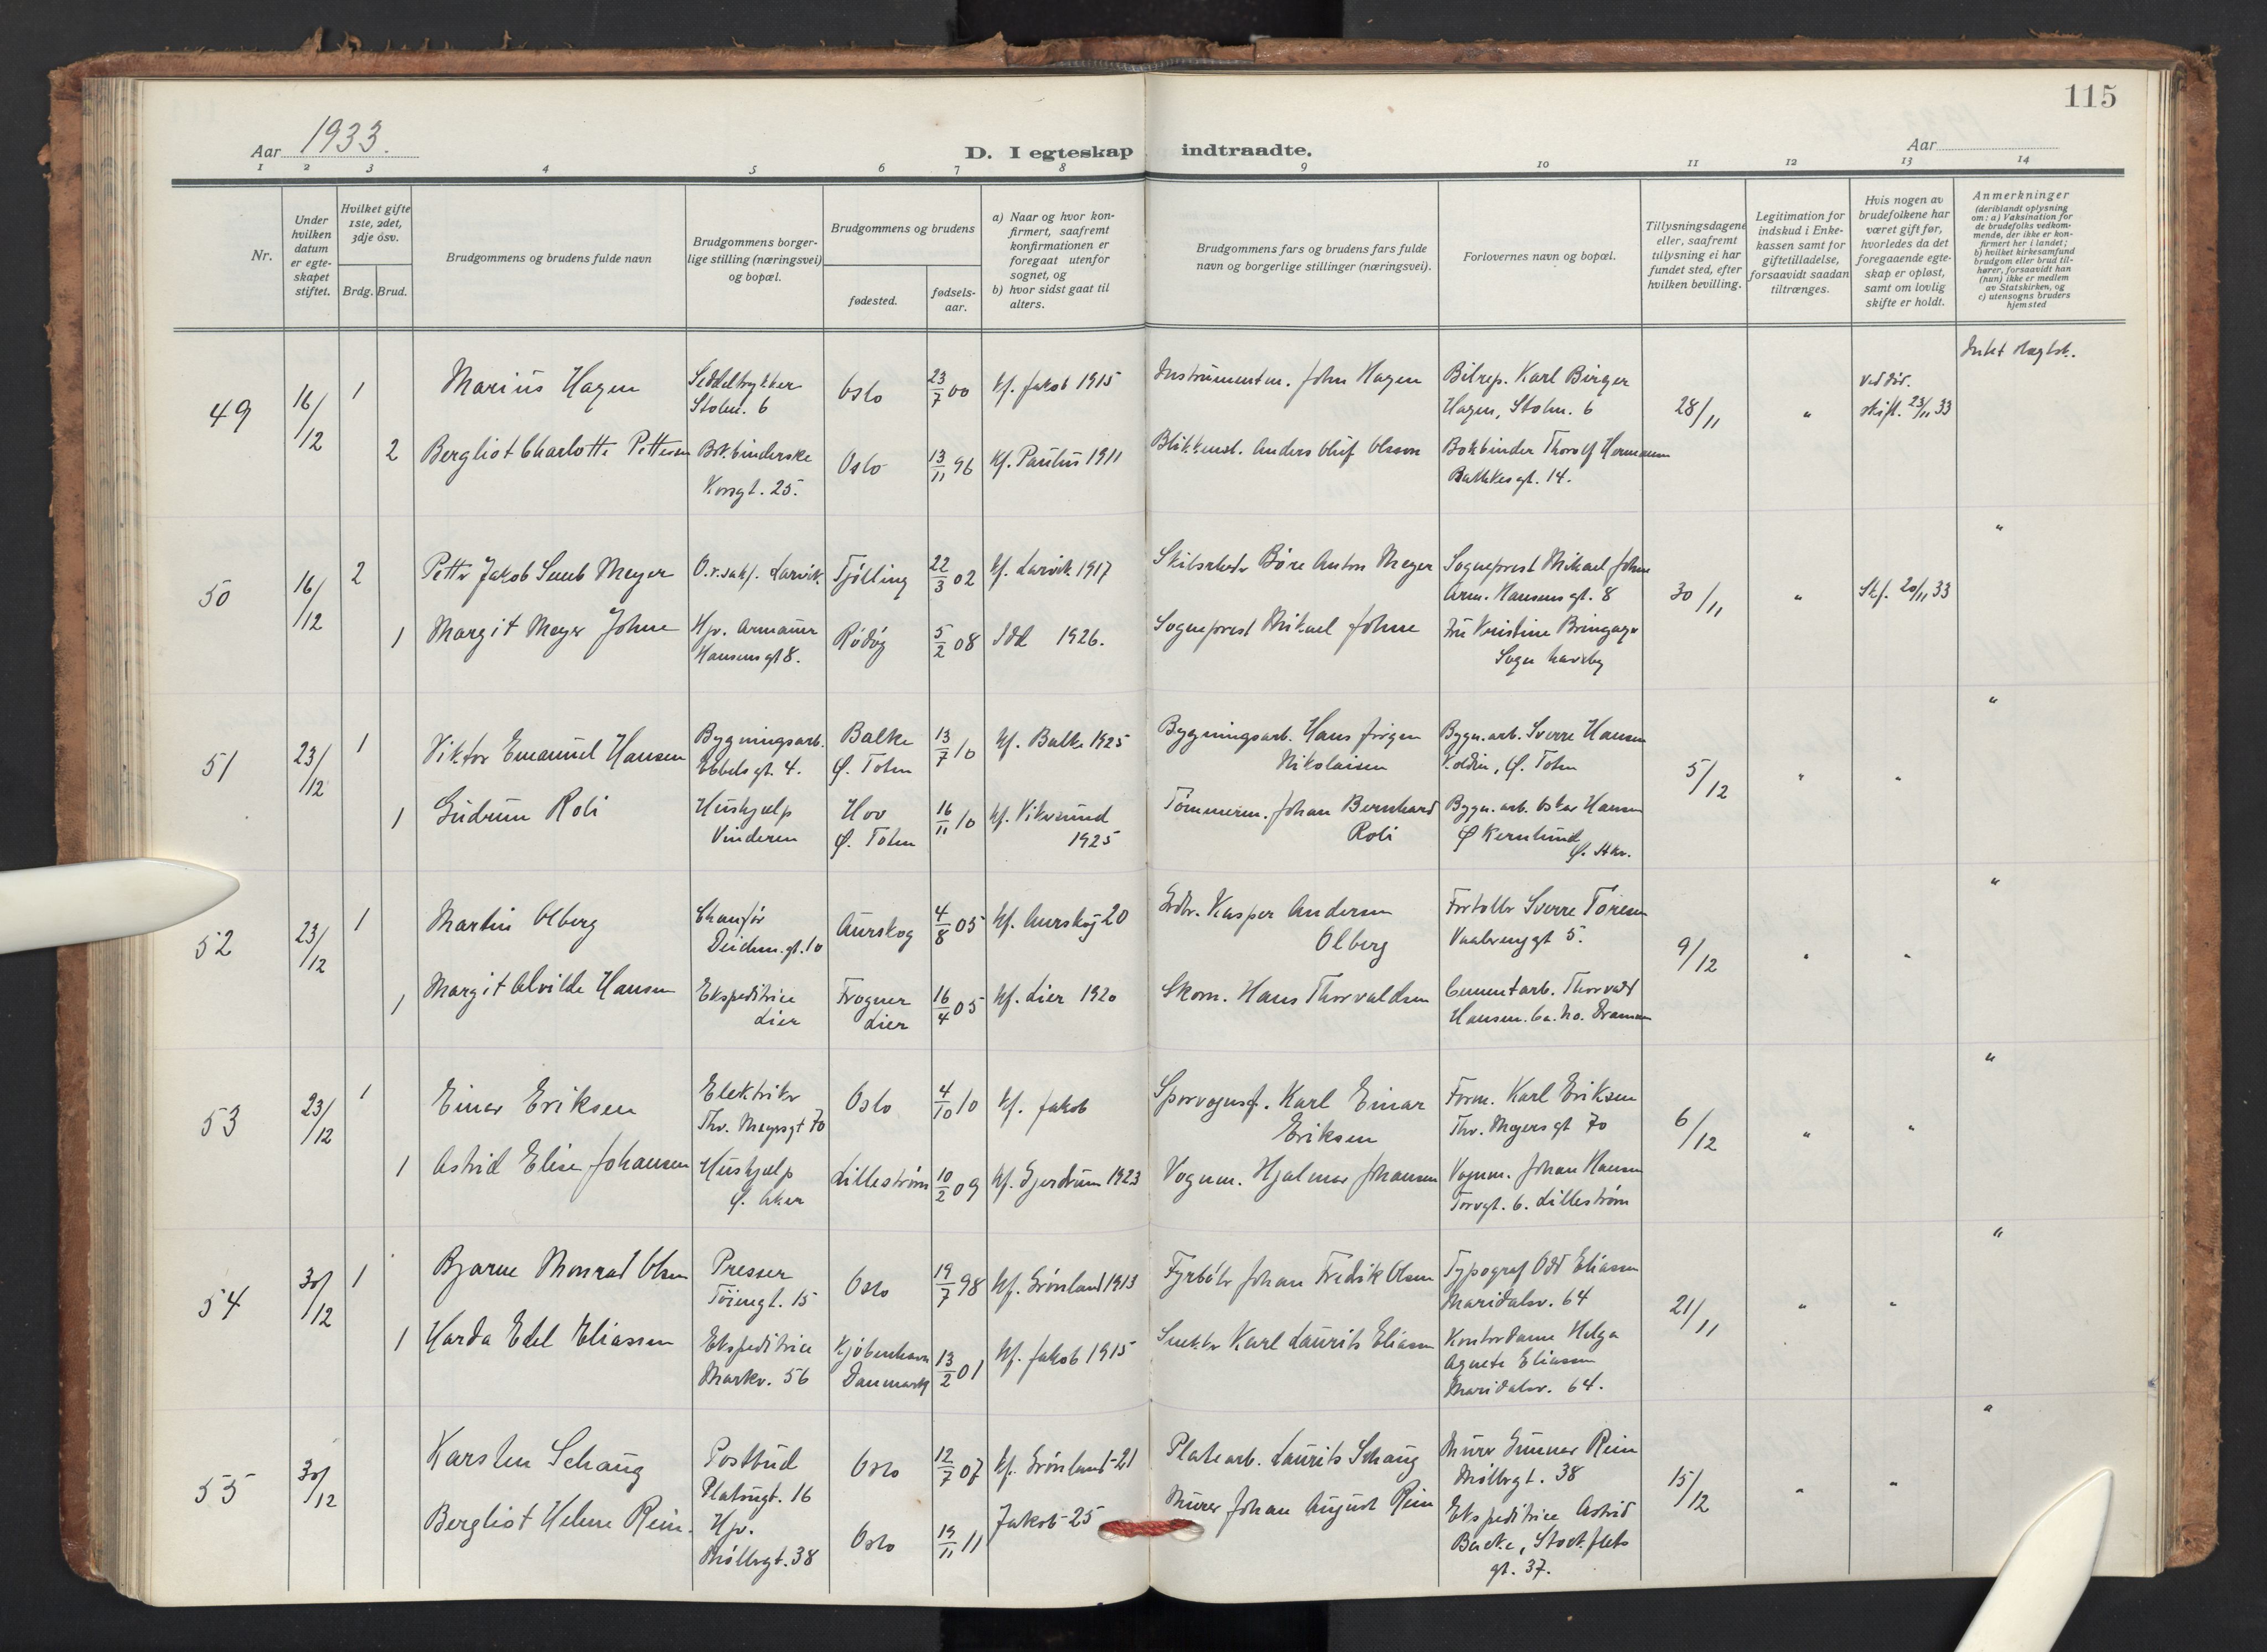 115
Aar 1933.
D. I egteskap indtraadte.
Aar
1 2 3 4 5 6 7 8 9 10 11 12 13 14
Nr.
Under
hvilken
datum
er egte-
skapet
stiftet.
Hvilket gifte
1ste, 2det,
3dje osv.
Brdg. Brud.
Brudgommens og brudens fulde navn
Brudgommens borger-
lige stilling (næringsvei)
og bopæl.
Brudgommens og brudens
fødested.
fødsels-
aar.
a) Naar og hvor kon-
firmert, saafremt
konfirmationen er
foregaat utenfor
sognet, og
b) hvor sidst gaat til
alters.
Brudgommens fars og brudens fars fulde
navn og borgerlige stillinger (næringsvei).
Forlovernes navn og bopæl.
Tillysningsdagene
eller, saafremt
tillysning ei har
fundet sted, efter
hvilken bevilling.
Legitimation for
indskud i Enke-
kassen samt for
giftetilladelse,
forsaavidt saadan
tiltrænges.
Hvis nogen av
brudefolkene har
været gift før,
hvorledes da det
foregaaende egte-
skap er opløst,
samt om lovlig
skifte er holdt.
Anmerkninger
(deriblandt oplysning
om: a) Vaksination for
de brudefolks vedkom-
mende, der ikke er kon-
firmert her i landet;
b) hvilket kirkesamfund
brudgom eller brud til-
hører, forsaavidt han
(hun) ikke er medlem
av Statskirken, og
c) utensogns bruders
hjemsted
49
16/12
1
Marius Hagen
Seddeltrykker
Stolm. 6
Oslo
23/7 00
kf. Jakob 1915
Instrumentm. John Hagen
Bilrep. Karl Birger
Hagen, Stolm. 6
28/11
"
ved dør.
skift. 23/11 33
Intet slegtsk.
2
Bergliot Charlotte Pettersen
Bokbinderske
Korsgt. 25.
Oslo
13/11 96
kf. Paulus 1911
Blikkensl. Anders Oluf Olsson
Bokbinder Thorolf Hermansen
Bakkegt. 14.
50
16/12
2
Petter Jakob Meyer
O.r.sakf. Larvik.
Tjølling
22/3 02
kf. Larvik 1917
Anton Meyer
Sogneprest Mikael Johne
Arm. Hansens gt. 8
30/11
"
Skf. 20/11 33
"
1
Margit Meyer Johne
Hjv. Armauer
Hansens gt 8.
Rødøy
5/2 08
Idd 1926.
Sogneprest Mikael Johne
Fru Kristine
Sogn haveby
51
23/12
1
Viktor Emanuel Hansen
Bygningsarb.
Ebbels gt. 4.
Balke
Ø. Toten
13/7 10
kf. Balke 1925
Bygningsarb. Hans Jørgen
Nikolaisen
Bygn. arb. Sverre Hansen
Ø. Toten
5/12
"
"
"
1
Gudrun Roli
Hushjælp
Vinderen
Hov
Ø. Toten
16/11 10
kf. Vikersund
1925
Tømmerm. Johan Bernhard
Roli
Bygn. arb. Oskar Hansen
52
23/12
1
Martin Olberg
Chaufør
Deichm. gt. 10
Aurskog
4/8 05
kf. Aurskog 20
Kasper Andersen
Olberg
Sverre
5.
9/12
"
"
"
1
Margit Alvilde Hansen
Ekspeditrice
Lier
Frogner
Lier
16/4 05
kf. Lier 1920
Skom. Hans Thorvaldsen
Cementarb. Thorvald
Hansen.
53
23/12
1
Einar Eriksen
Elektriker
Thv. Meyersgt 70
Oslo
4/10 10
kf. Jakob
Sporvognsf. Karl Einar
Eriksen
Form. Karl Eriksen
Thv. Meyers gt 70
6/12
"
"
"
1
Astrid Elise Johansen
Hushjælp
Ø. Aker
Lillestrøm
10/2 09
kf. Gjerdrum 1923
Vognm. Hjalmar Johansen
Vognm. Johan Hansen
Torvgt. 6. Lillestrøm
54
30/12
1
Bjarne Monrad Olsen
Presser
Tøiengt. 15
Oslo
19/7 98
kf. Grønland 1913
Fyrbøter Johan Fredrik Olsen
Typograf Odd Eliassen
Maridalsv. 64
21/11
"
"
"
1
Harda Edel Eliassen
Ekspeditrice
Markv. 56
Kjøbenhavn
Danmark
13/2 01
kf. Jakob 1915
Snekker Karl Laurits Eliassen
Kontordame Helga
Agnete Eliassen
Maridalsv. 64.
55
30/12
Karsten Schaug
Postbud
Platougt. 16
Oslo
12/7 07
kf. Grønland -21
Platearb. Laurits Schaug
Murer Gunnar Rein
Møllergt. 38
15/12
"
"
"
Bergliot Helene Rein.
Hjv.
Møllergt. 38
Oslo
19/11 11
Jakob -25
Murer Johan August Rein
Ekspeditrice Astrid
gt. 37.